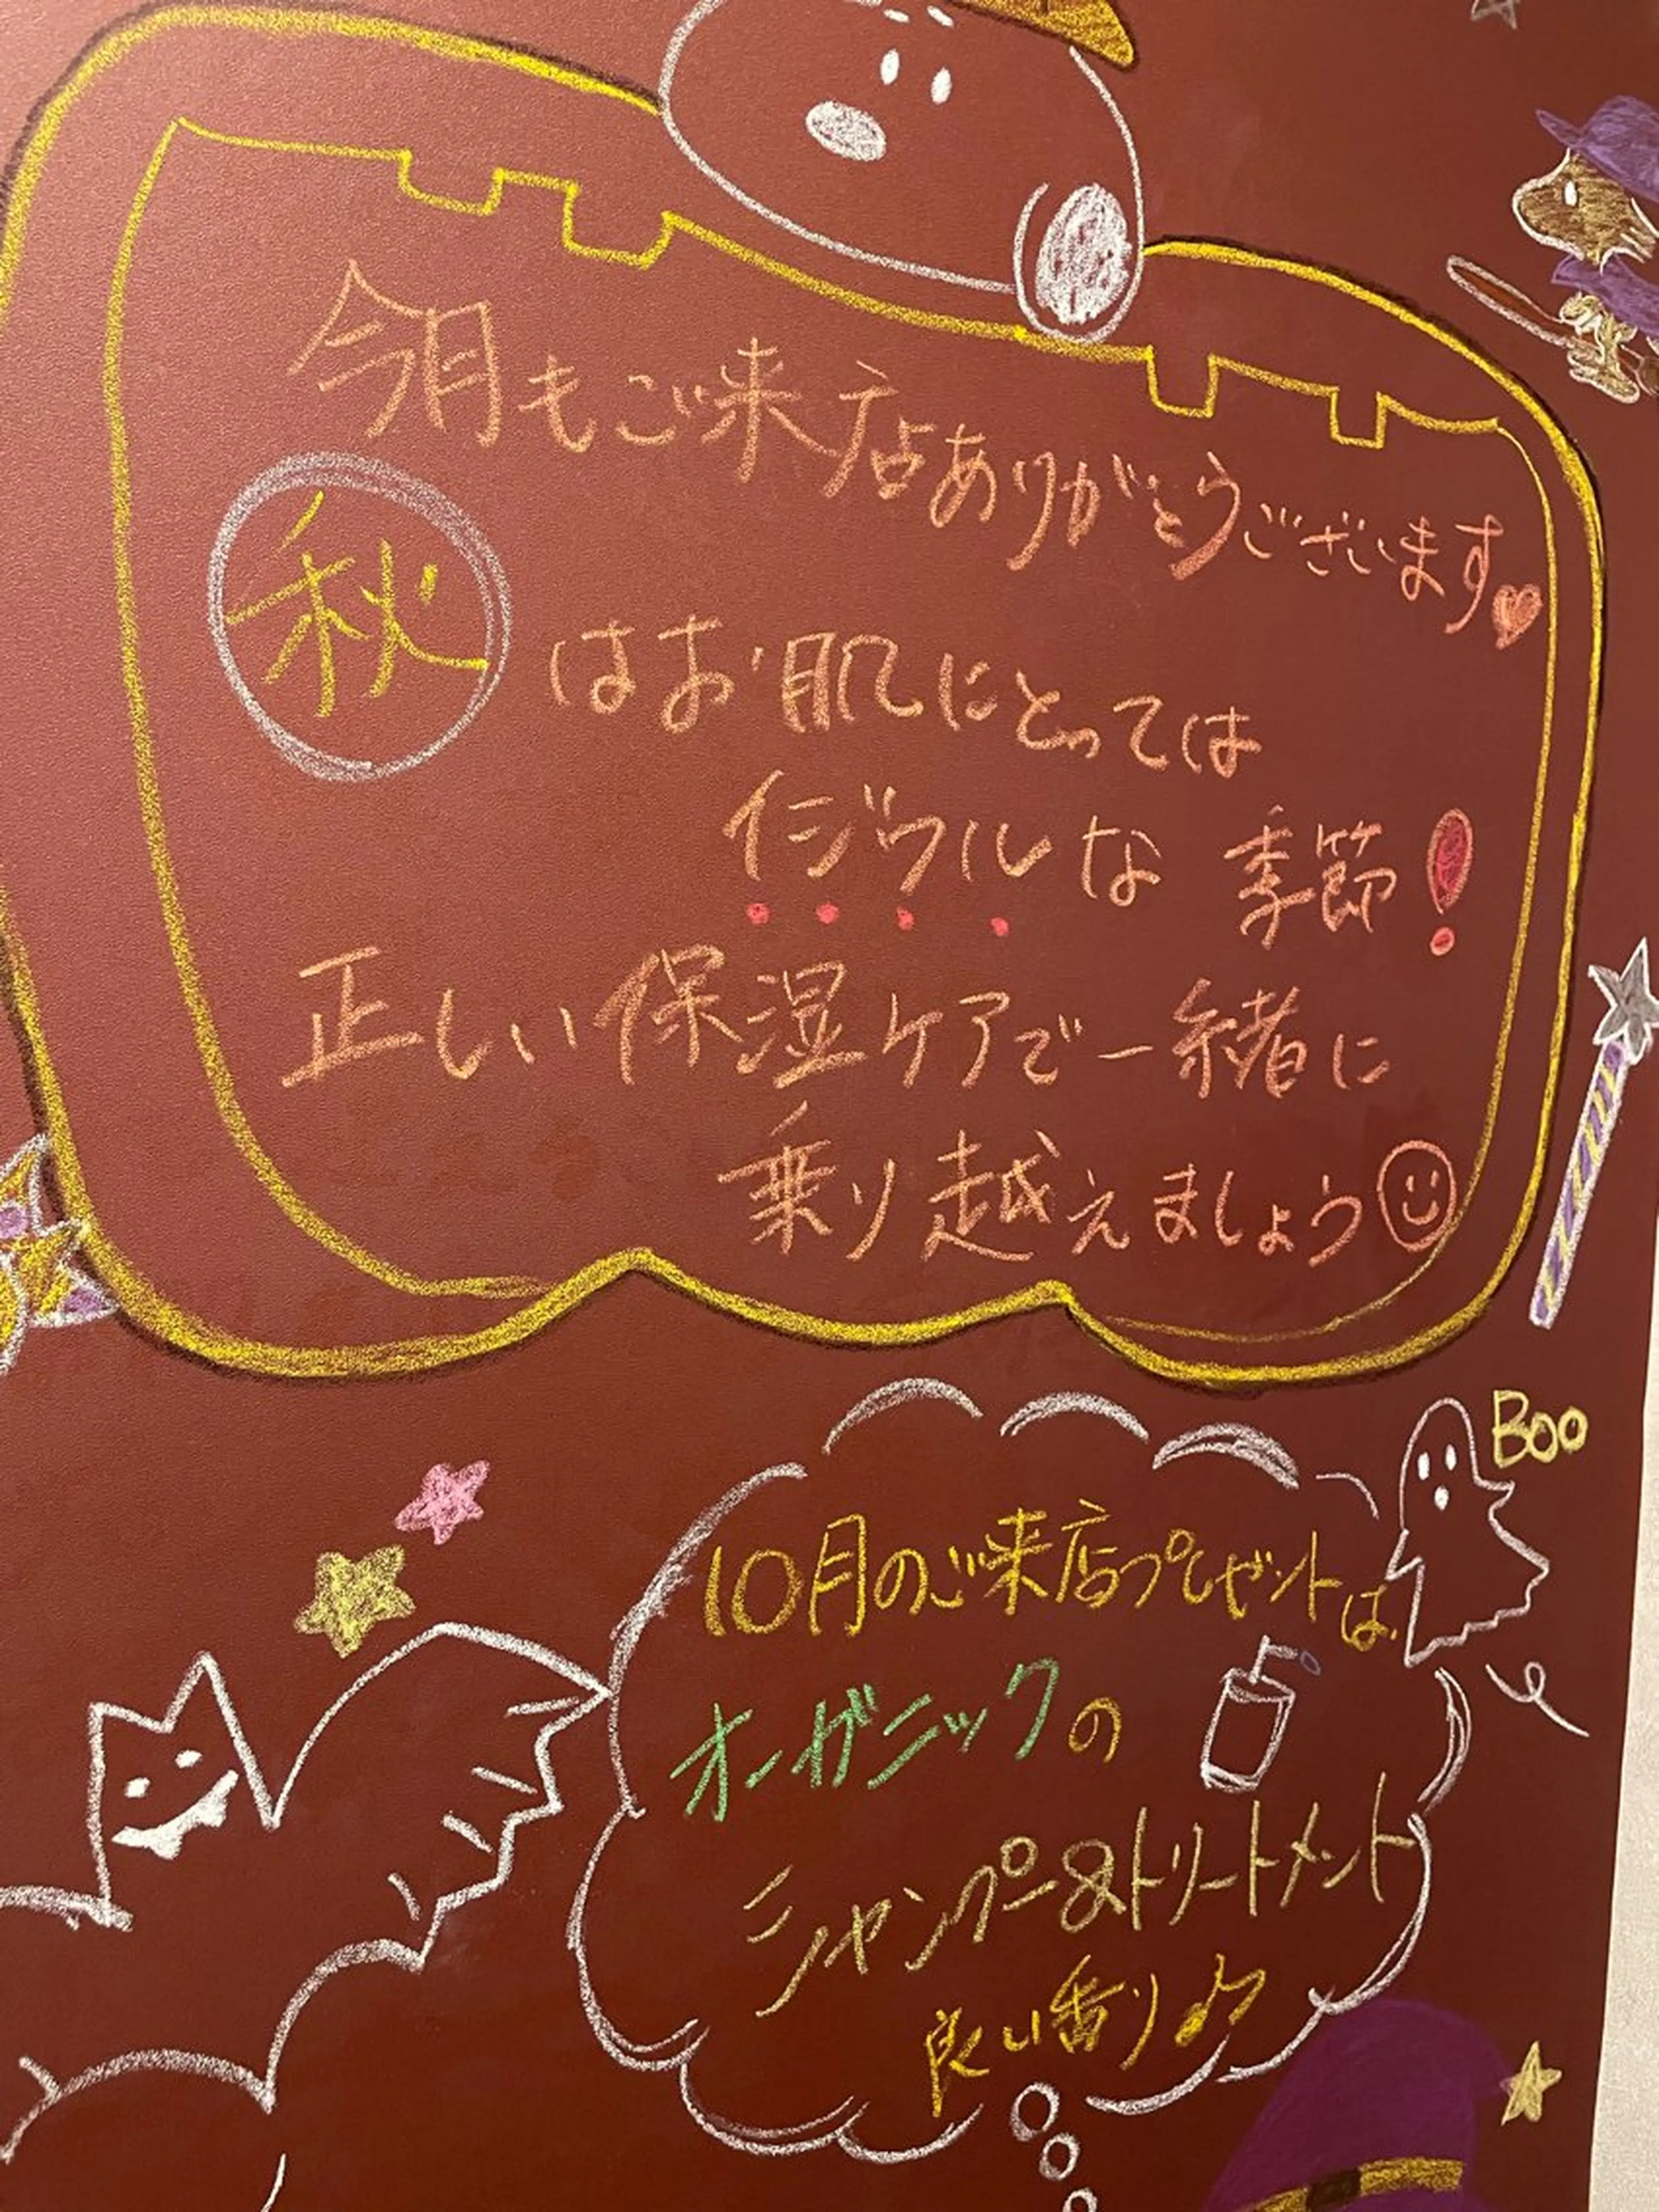 今月もご来店ありがとうございます♥
秋はお肌にとっては
イジワルな季節！
正しい保湿ケアで一緒に
乗り越えましょう☺
Boo
10月のご来店プレゼントは
オーガニックの
シャンプー&トリートメント
良い香り♪